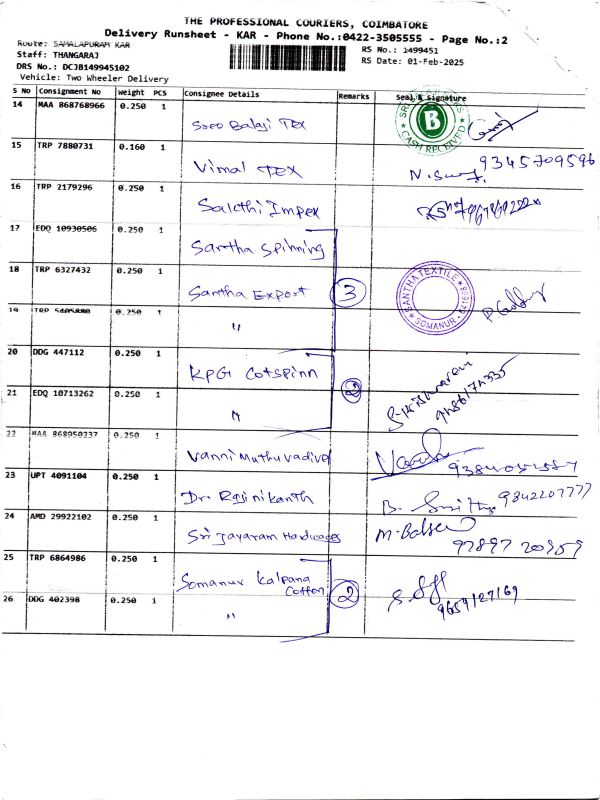 THE PROFESSIONAL COURIERS, COIMBATORE
Delivery Runsheet - KAR - Phone No.:0422-3505555 - Page No.:2
Route: SAMALAPURAM KAR
Staff: THANGARAJ
DRS No.: DCJB149945102
Vehicle: Two Wheeler Delivery
RS No.: 1499451
RS Date: 01-Feb-2025
S No Consignment No Weight PCS Consignee Details Remarks Seal & Signature
14 MAA 868768966 0.250 1 Sree Balaji TEX B CASH RECEIVED
15 TRP 7880731 0.160 1 Vimal TEX 9345709596
16 TRP 2179296 0.250 1 Sakthi Impex
17 EDQ 10930506 0.250 1 Santha Spinning
18 TRP 6327432 0.250 1 Santha Export 3 SANTHA TEXTILE SOMANUR
19 TRP 5405880 0.250 1 "
20 DDG 447112 0.250 1 KPG Cotspinn 2
21 EDQ 10713262 0.250 1 "
22 MAA 868950237 0.250 1 Vanni Muthuvadivel
23 UPT 4091104 0.250 1 Dr. Rajinikanth 9842207777
24 AMD 29922102 0.250 1 Sri Jayaram Hardwares 97897 20959
25 TRP 6864986 0.250 1 Somanur Kalpana Cotton 2 9659127169
26 DDG 402398 0.250 1 "